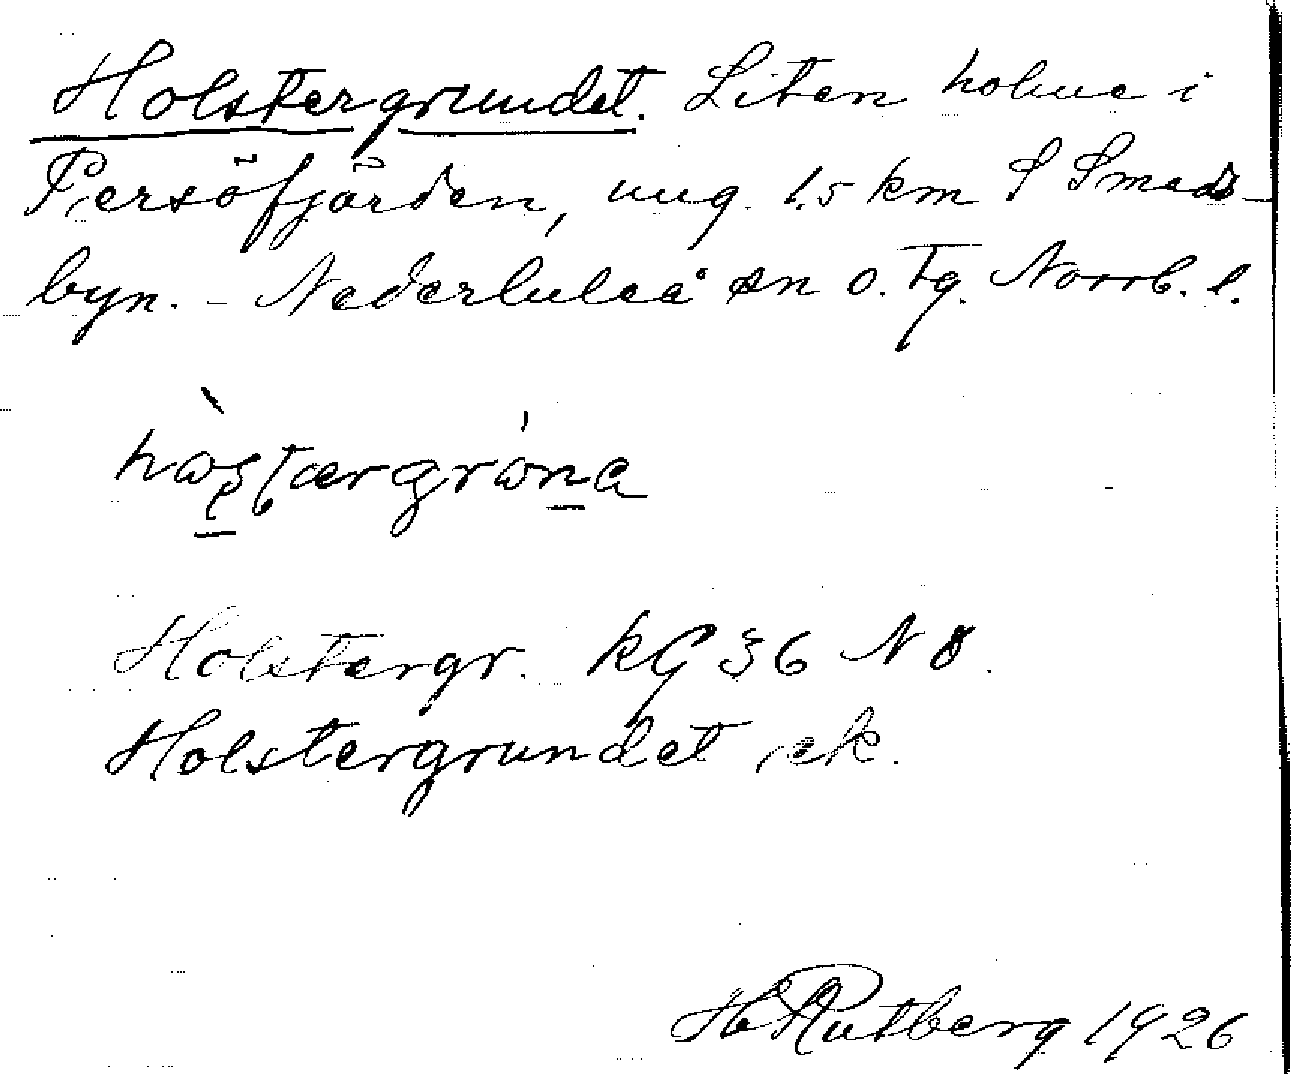 Holstergrundet. Liten holme i
Persöfjärden, ung. 1.5 km S Smeds-
byn. - Nederluleå sn o. tg. Norrb. l.
Holstergr. kG 36 N8.
Holstergrundet ek.
H Rutberg 1926